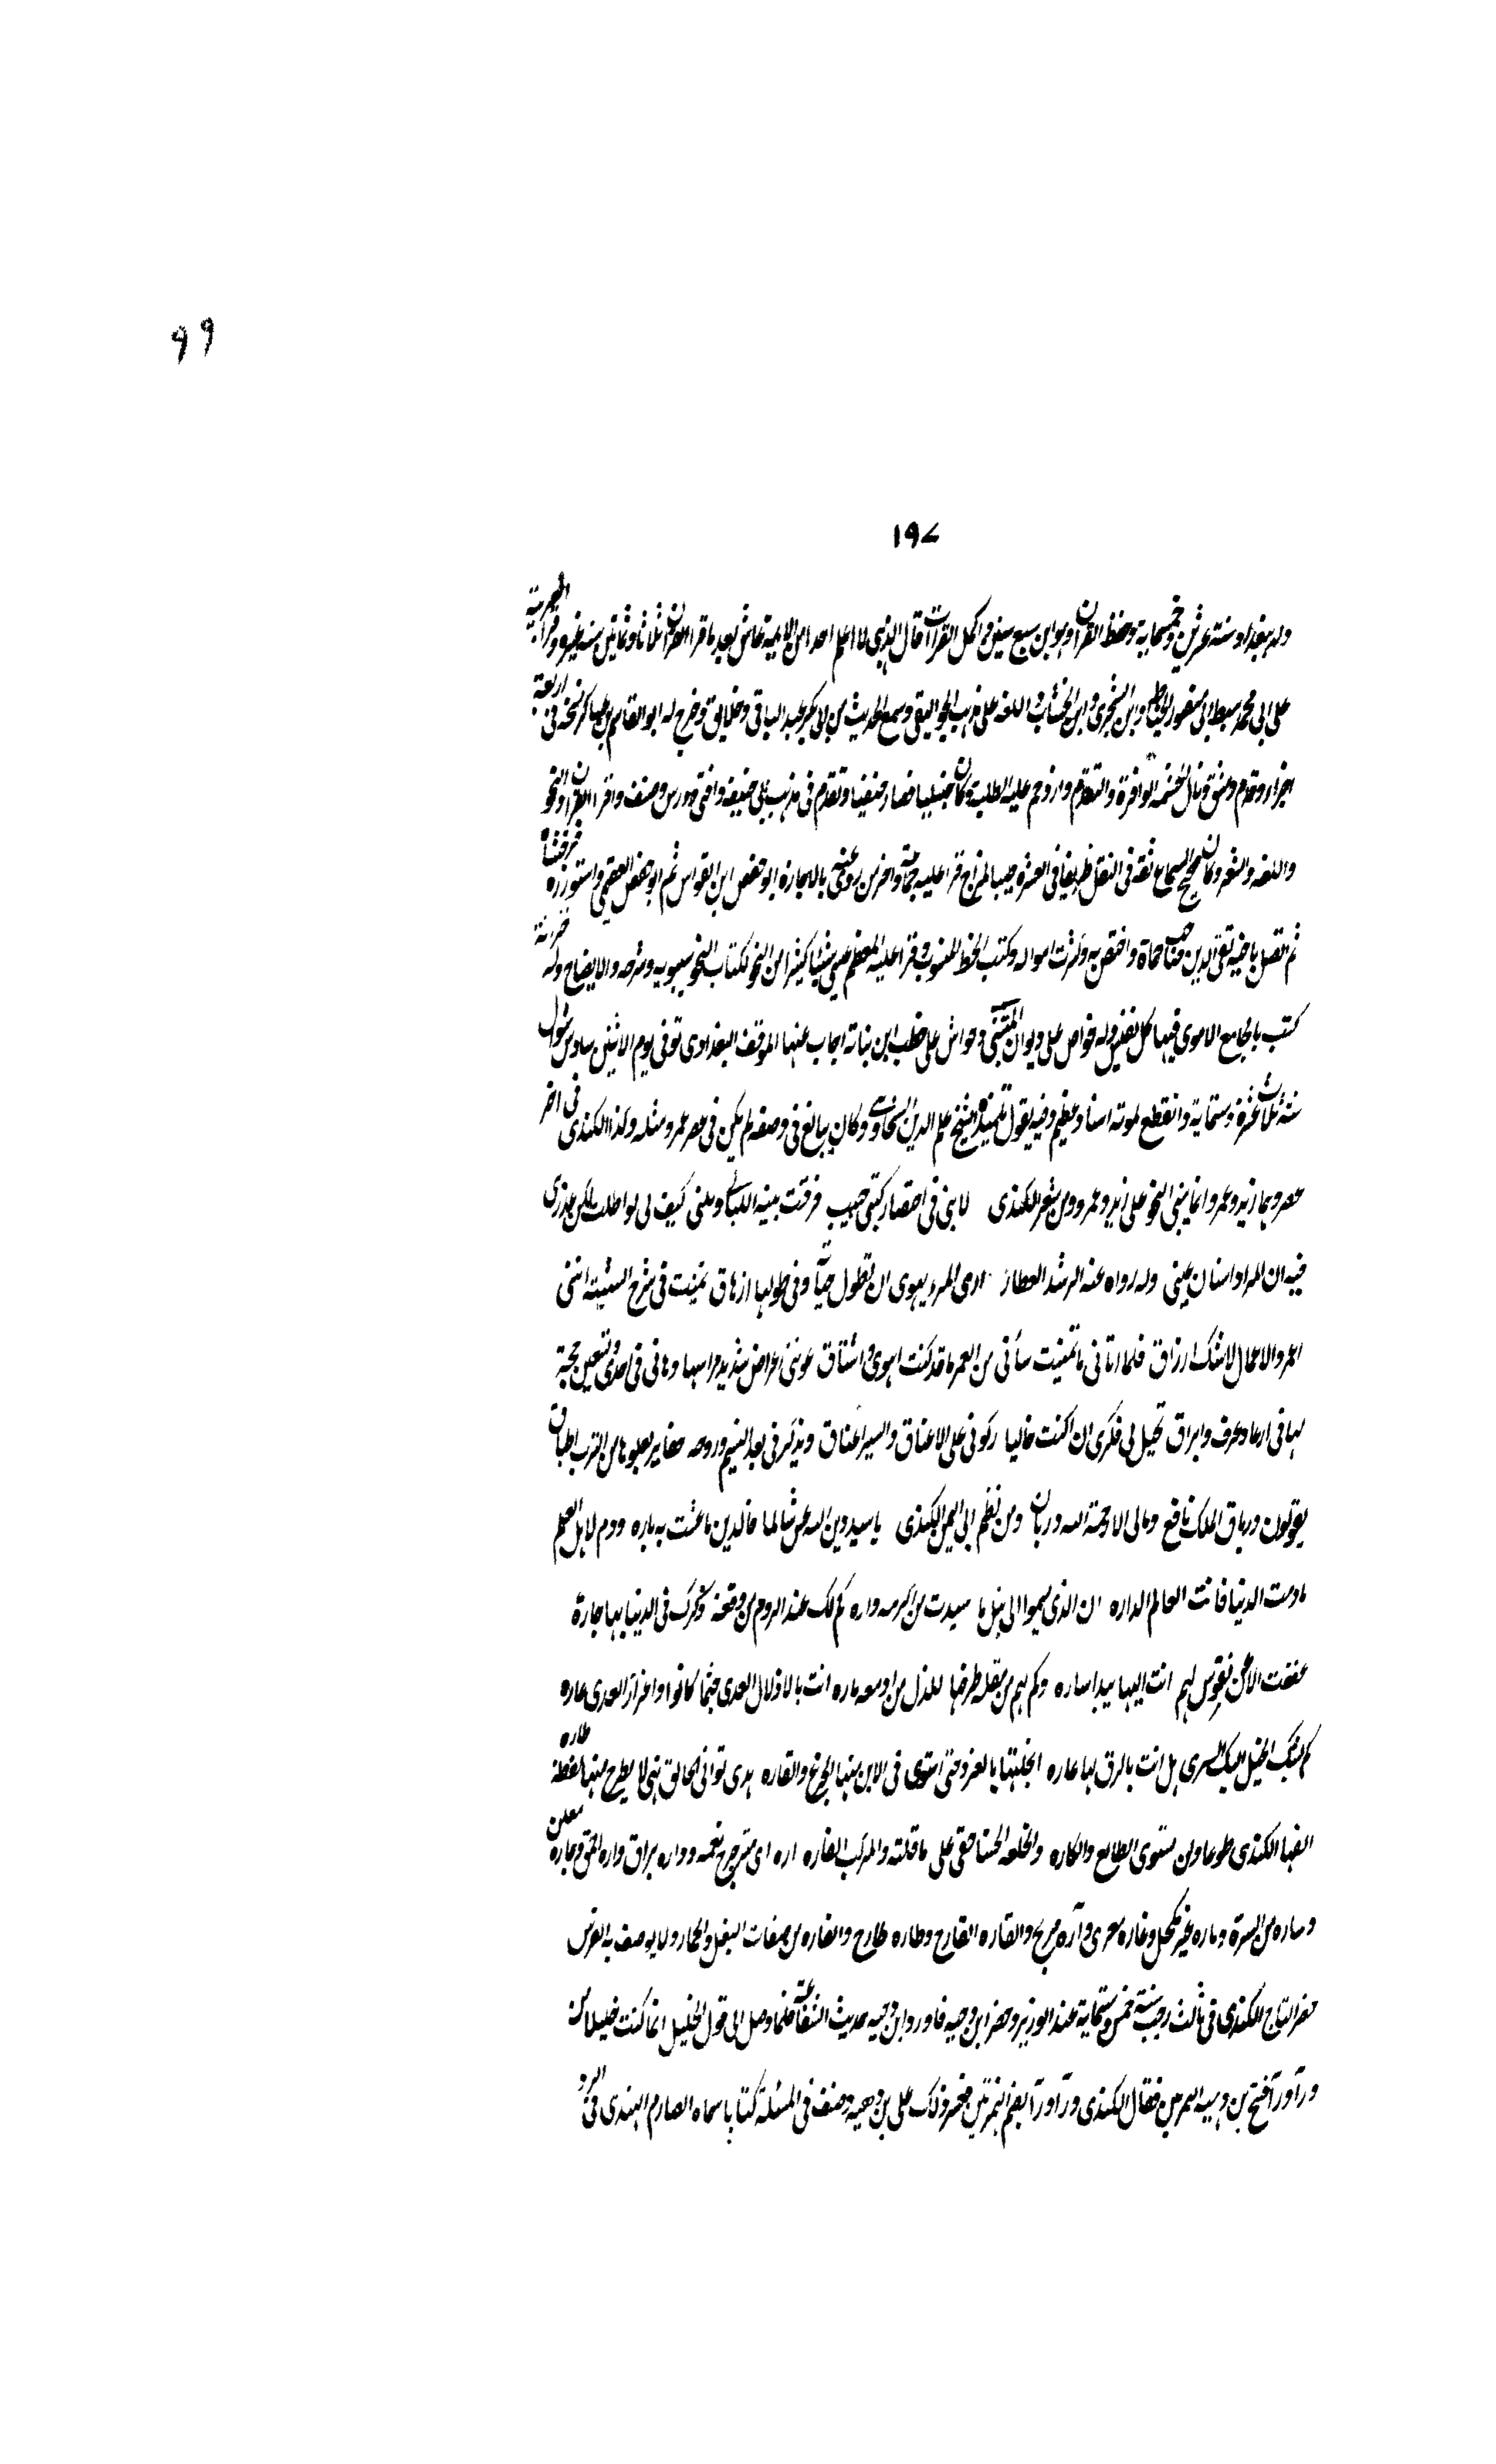 ٩٩
١٩٧
ولد ببغداد سنة عشرين وخمسماية وحفظ القرآن وهو ابن سبع سنين واكمل القراآت قال الذهبى لا اعلم احدا من الايمة عاش بعد ما قرا القران ثلاثا وثمانين سنة غيره وقرا العربية
على ابى محمد سبط ابى منصور الخياط وابن الشجرى وابن الخشاب واللغه على موهب الجواليقى وسمع الحديث من ابى بكر عبد الباقى وخلايق وخرج له ابو القاسم بن عساكر مشيخة فى اربعة
اجزاء وقدم دمشق ونال الحشمه الوافرة والتقدم وازدحم عليه الطلبة وكان حنبليا فصار حنفيا وتقدم فى مذهب ابى حنيفه وافتى ودرس وصنف واقرا القران والنحو
واللغه والشعر وكان صحيح السماع ثقه فى النقل ظريفا فى العشره طيب المزاج قرا عليه جماعة واخر من روى عنه بالاجازة ابو حفص ابن القواس ثم ابو حفص العقيمى واستوزره فرخشاه
ثم اتصل باخيه تقى الدين صاحب حماة واختص به وكثرت امواله وكتب الخط المنسوب وقرا عليه المعظم عيسى شيئا كثيرا من النحو ككتاب سيبويه وشرحه والايضاح وله خزانة
كتب بالجامع الاموى فيها كل نفيس وله حواش على ديوان المتنبى وحواش على خطب ابن نباتة اجاب عنها الموفق البغدادى توفى يوم الاثنين سادس شوال
سنة ثلاث عشرة وستماية وانقطع بموته اسناد عظيم وفيه يقول تلميذه الشيخ علم الدين السخاوى وكان يبالغ فى وصفه لم يكن فى عصر عمرو مثله وكذا الكندى فى اخر
عصر وهما زيد وعمرو انما بنى النحو على زيد وعمرو ومن شعر الكندى لامنى فى اختصار كتبى حبيب فرقت بينه الليالى وبينى كيف لى لو اطلت لكن عذرى
فيه ان المداد انسان عينى وله رواه عنه الرشيد العطار ارى المرء يهوى ان تطول حياته وفى طولها ارهاق تمنيت فى شرخ الشبيبة اننى
اعمر والاعمال لا شك ارزاق فلما اتانى ما تمنيت سأنى من العمر ما قد كنت اهوى واشتاق عرتنى اعراض شديد مراسها وهانى فى احدى وتسعين حجة
لها فى ارعاد مخوف وابراق تخيل لى فكرى ان كنت خاليا ركوبى على الاعناق والسير اعناق ويذكرنى بعد النسيم وروحه حفاير يعلوها من الترب اطباق
يقولون درياق لمثلك نافع ومالى الا رحمة الله درياق ومن نظم ابى اليمن الكندى يا سيد دين الله عش سالما فالدين ما عشت به باره ودم لاهل العلم
ما دمت الدنيا فانت العالم الداره ان الذى يسموا الى نيل ما سيدت من اكرمه واره كم لك عند الروم من وقعة ذكرك فى الدنيا بها جارة
انت اليها بيدا ساره وكم لهم من مقلة طرفها للذل من ادمعه ماره انت بالاذلال العدى حيثما كانوا واعزاز العدى عاره
كم تشتكى الخيل اليك السرى هل انت بالرفق لها عاره انحلتها بالغزو حتى استوى فى الابن منها الجرع والقاره هدى توانى الحالق بنى لا يطرح منها لفظة طاره
الفها الكندى طوعا ولن يستوى الطايع والكاره والخلعه الحسنا حقى على ما قلته والمركب الفاره اره اى مترجح نعمه وداره براق واره احمق وجاره معلن
وساره من السرة وماره غير مكحل وعاره معرى وآره مريح والقاره القارح وطاره طارح والفاره من صفات البغل والحمار ولا يوصف به الفرس
حضر التاج الكندى فى ثالث رجب سنة خمس وستماية عند الوزير وحضر ابن دحيه فاورد ابن دحيه حديث الشفاعة فلما وصل الى قول الخليل انما كنت خليلا من
ورآ ورآ فتح ابن دحيه الهمزتين فقال الكندى ورآ ورآ بضم الهمزتين فعسر ذلك على بن دحيه وصنف فى المسئلة كتابا سماه الصارم الهندى فى الرد